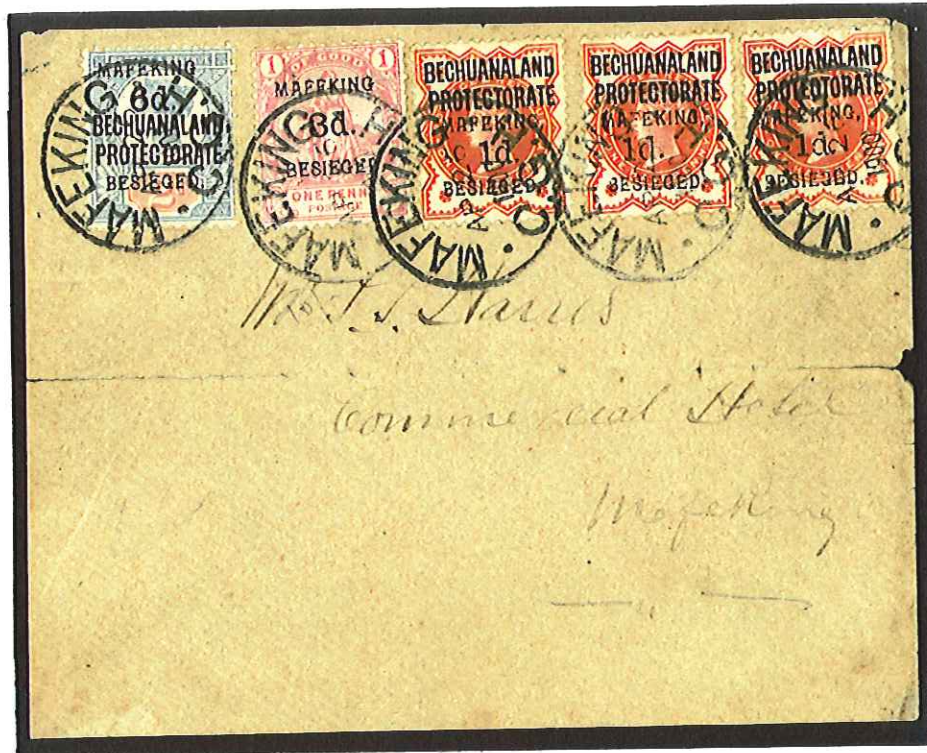 MAFEKING
6d.
BECHUANALAND
PROTECTORATE
BESIEGED.
1 OF GOOD 1
MAFEKING
3d.
BESIEGED
ONE PENNY
POSTAGE
BECHUANALAND
PROTECTORATE
MAFEKING,
1d.
BESIEGED.
BECHUANALAND
PROTECTORATE
MAFEKING,
1d.
BESIEGED.
BECHUANALAND
PROTECTORATE
MAFEKING,
1d.
BESIEGED.
MAFEKING C.G.H.
MAFEKING C.G.H.
MAFEKING C.G.H.
MAFEKING C.G.H.
MAFEKING C.G.H.
1900
Harris
Commercial Hotel
Mafeking